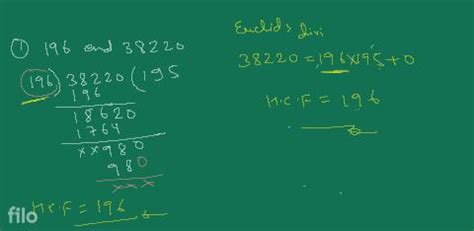 ① 196 and 38220
196) 38220 (195
196
18620
1764
××980
980
×××
H.C.F = 196
Euclid's divi
38220 = 196×195+0
H.C.F = 196
filo